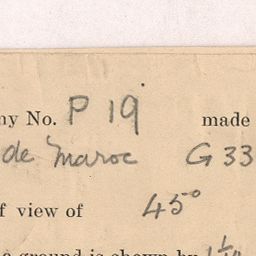 ny No. P 19 made
de Maroc G 33
f view of 45°
a ground is shown by